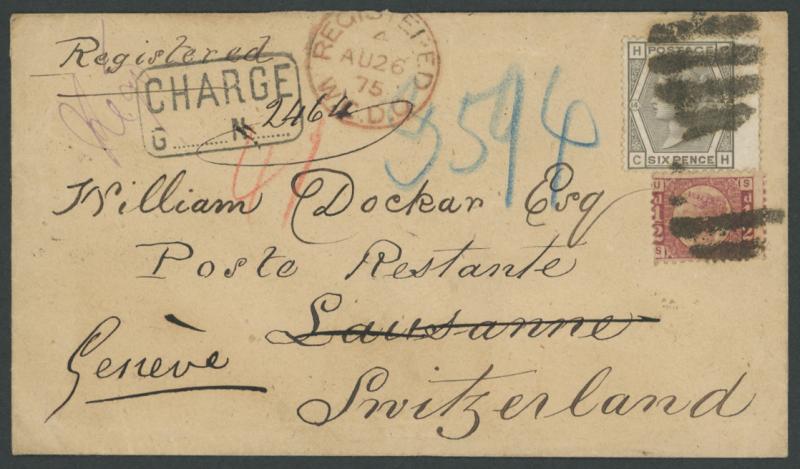 Registered
Reg
CHARGE
G N
2464
REGISTERED
4
AU 26
75
W.C.D.O
3594
H POSTAGE
14
C SIX PENCE H
U S
1 2 1 2
S
William Dockar Esq
Poste Restante
Lausanne
Genève
Switzerland